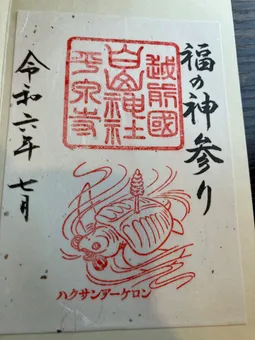 福の神参り
越前國
白山神社
平泉寺
令和六年 七月
ハクサンアーケロン